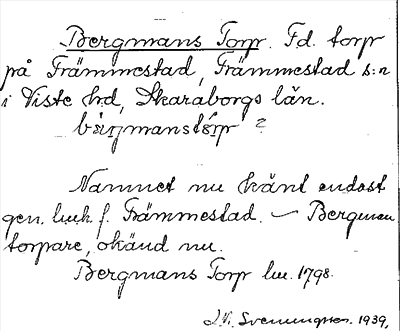 Bergmans Torp. Fd. torp
på Främmestad, Främmestad s:n
i Viste hd, Skaraborgs län.
Namnet nu känt endast
gen. luck f. Främmestad. — Bergman
torpare, okänd nu.
Bergmans Torp hu. 1798.
J. V. Svenungsson. 1939.